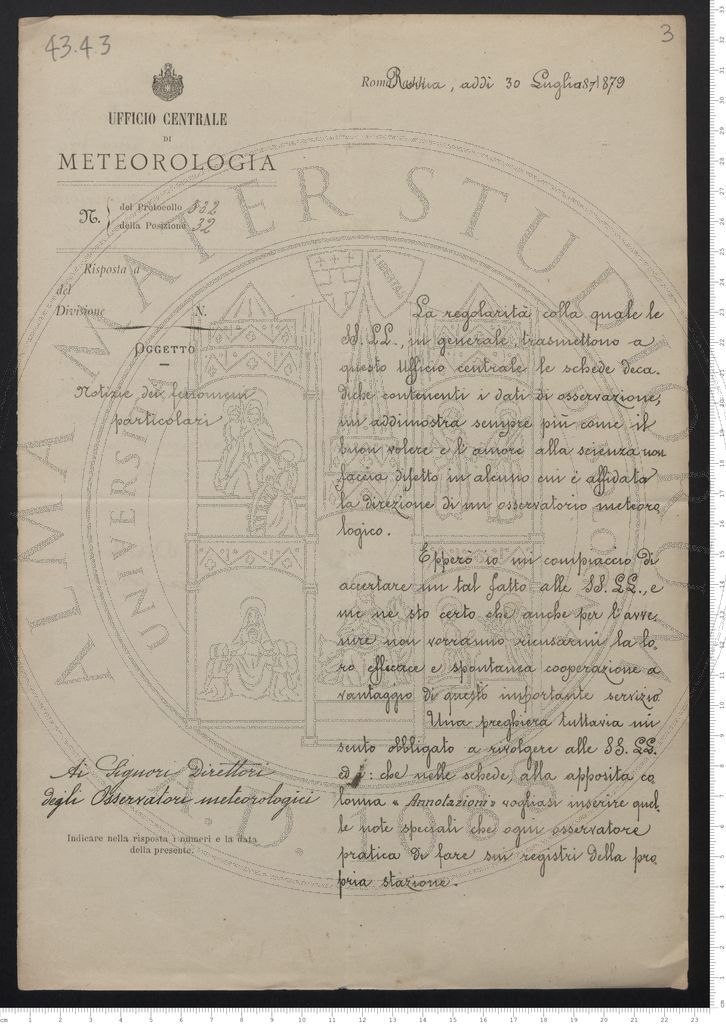 43.43
3
Roma, addì 30 Luglio 1879
UFFICIO CENTRALE
DI
METEOROLOGIA
N. del Protocollo 532
della Posizione 32
Risposta a
del
Divisione N.
OGGETTO
Notizie dei fenomeni
particolari
La regolarità colla quale le
SS. LL., in generale, trasmettono a
questo Ufficio centrale le schede deca-
diche contenenti i dati di osservazione,
mi addimostra sempre più come il
buon volere e l'amore alla scienza non
faccia difetto in alcuno cui è affidata
la direzione di un osservatorio meteoro
logico.
Epperò io mi compiaccio di
accertare un tal fatto alle SS. LL., e
me ne sto certo che anche per l'avve-
nire non vorranno ricusarmi la lo-
ro efficace e spontanea cooperazione a
vantaggio di questo importante servizio.
Una preghiera tuttavia mi
sento obbligato a rivolgere alle SS. LL.
ed è: che nelle schede, alla apposita co
lonna "Annotazioni" vogliasi inserire quel
le note speciali che ogni osservatore
pratica di fare sui registri della pro
pria stazione.
Ai Signori Direttori
degli Osservatori meteorologici
Indicare nella risposta i numeri e la data
della presente.
ALMA MATER STUDIORUM
UNIVERSITÀ
A.D. 1088
LIBERTAS